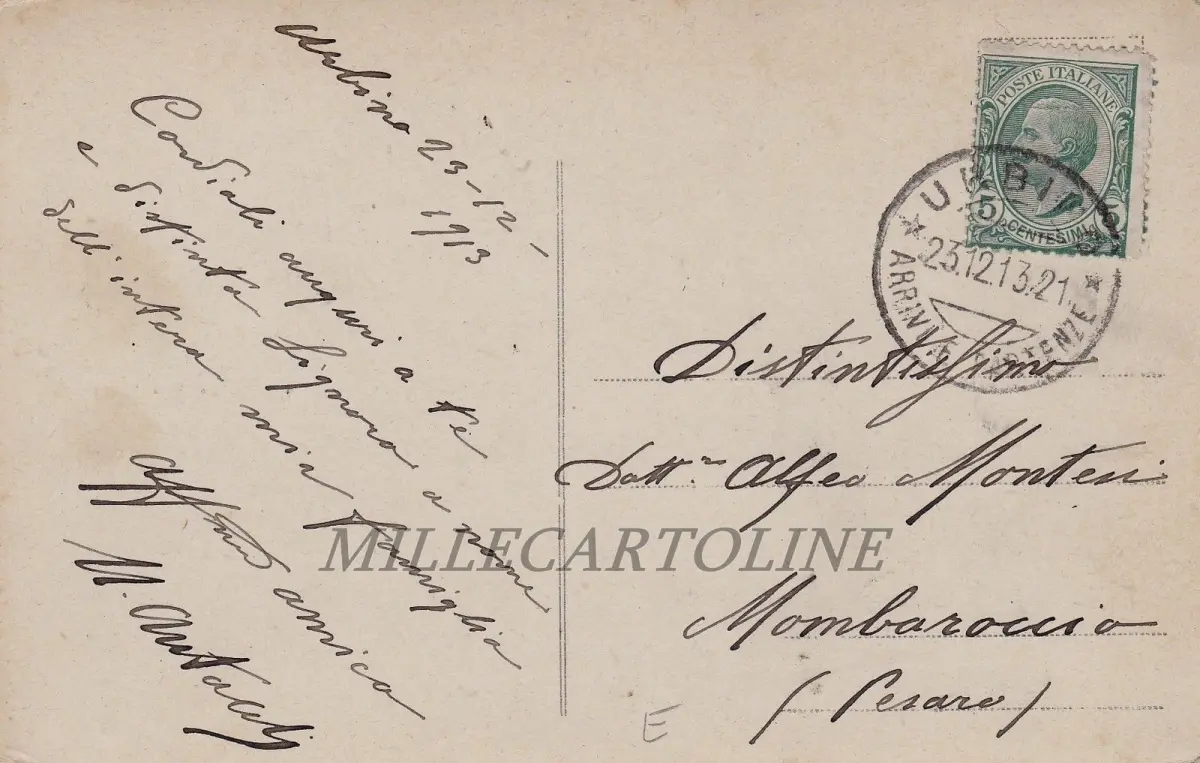 Urbino 23-12-
1913
Cordiali auguri a te
e distinta Signora a nome
dell'intera mia famiglia
aff.mo amico
M. Antaldi
POSTE ITALIANE
5 CENTESIMI 5
URBINO
23.12.13.21
ARRIVI E PARTENZE
Distintissimo
Dott.r Alfeo Montesi
Mombaroccio
(Pesaro)
MILLECARTOLINE
E